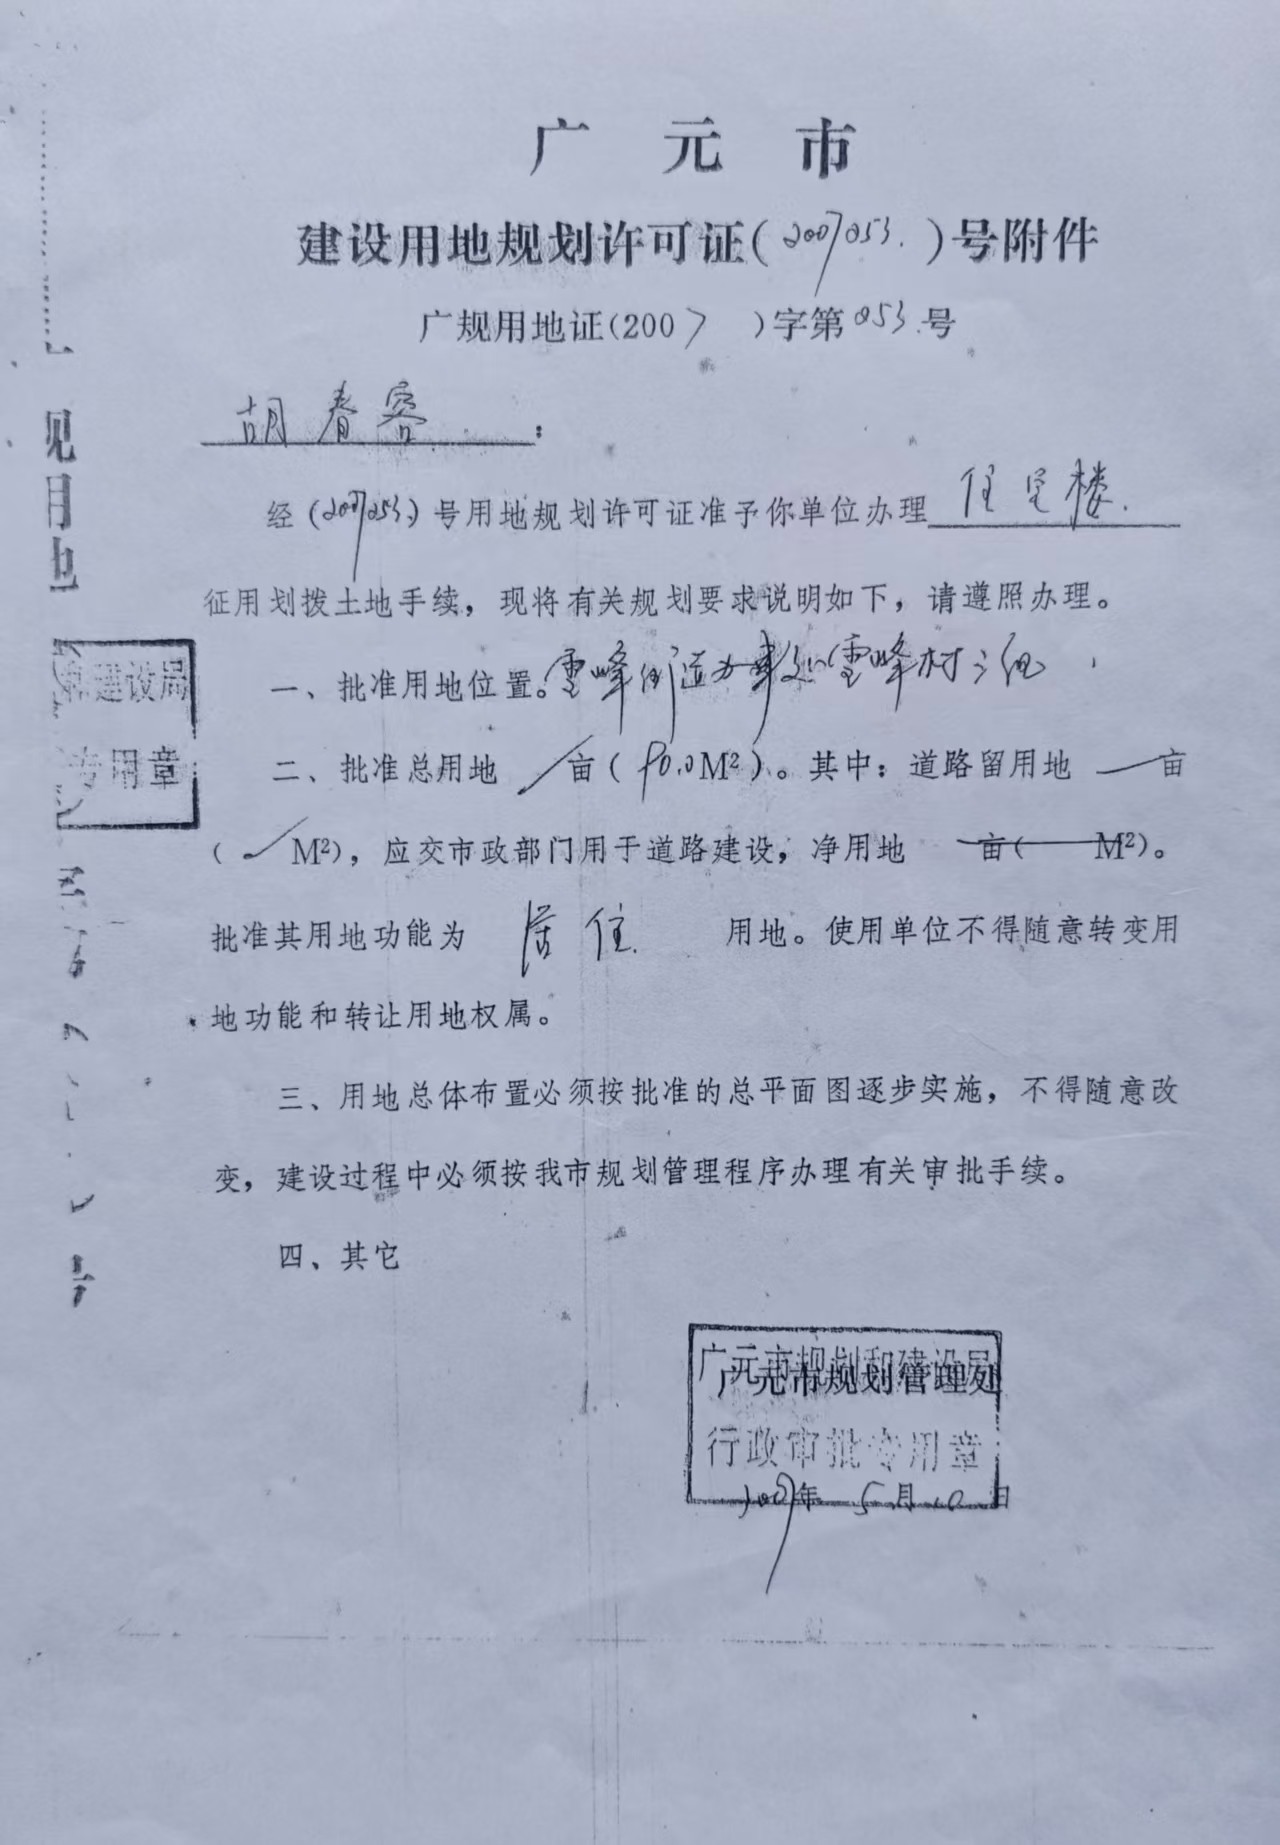 广元市
建设用地规划许可证(2007053.)号附件
广规用地证(2007 )字第053.号
胡春容:
经(2007053.)号用地规划许可证准予你单位办理住宅楼.
征用划拨土地手续，现将有关规划要求说明如下，请遵照办理。
一、批准用地位置。雪峰街道办事处雪峰村三组
二、批准总用地 / 亩(90.0M²)。其中：道路留用地 — 亩
( / M²)，应交市政部门用于道路建设，净用地 — 亩( — M²)。
批准其用地功能为 居住. 用地。使用单位不得随意转变用
地功能和转让用地权属。
三、用地总体布置必须按批准的总平面图逐步实施，不得随意改
变，建设过程中必须按我市规划管理程序办理有关审批手续。
四、其它
广元市规划和建设局
广元市规划管理处
行政审批专用章
2007年5月10日
和建设局
专用章